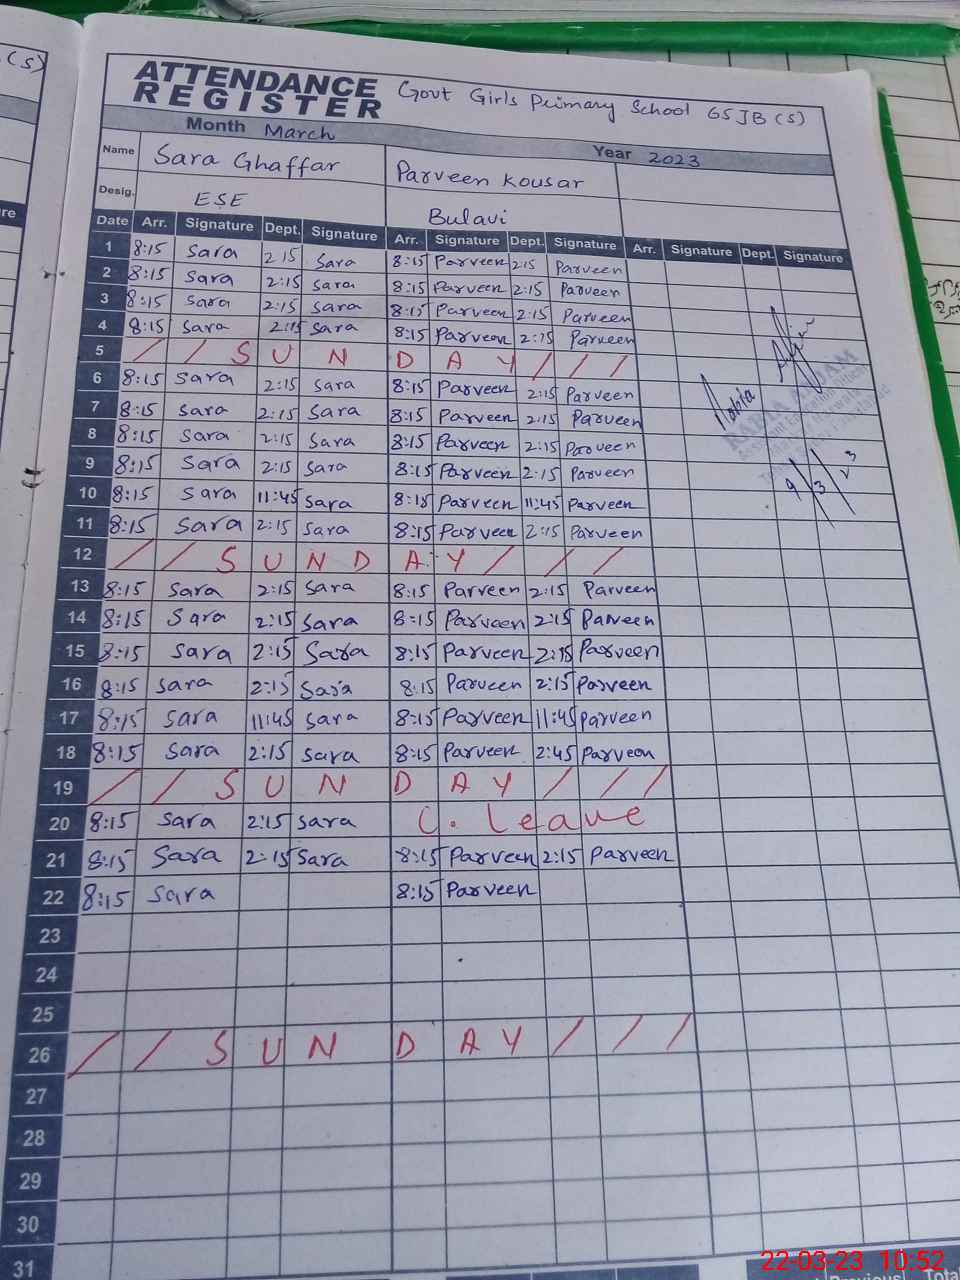 (S)
ATTENDANCE REGISTER Govt Girls Primary School 65JB (S)
Month March Year 2023
Name Sara Ghaffar Parveen Kousar
Desig. ESE Bulavi
Date Arr. Signature Dept. Signature Arr. Signature Dept. Signature Arr. Signature Dept. Signature
1 8:15 Sara 2:15 Sara 8:15 Parveen 2:15 Parveen
2 8:15 Sara 2:15 Sara 8:15 Parveen 2:15 Parveen
3 8:15 Sara 2:15 Sara 8:15 Parveen 2:15 Parveen
4 8:15 Sara 2:15 Sara 8:15 Parveen 2:15 Parveen
5 / / S U N D A Y / / /
6 8:15 Sara 2:15 Sara 8:15 Parveen 2:15 Parveen
7 8:15 Sara 2:15 Sara 8:15 Parveen 2:15 Parveen
8 8:15 Sara 2:15 Sara 8:15 Parveen 2:15 Parveen
9 8:15 Sara 2:15 Sara 8:15 Parveen 2:15 Parveen
10 8:15 Sara 11:45 Sara 8:15 Parveen 11:45 Parveen
11 8:15 Sara 2:15 Sara 8:15 Parveen 2:15 Parveen
12 / / S U N D A Y / / /
13 8:15 Sara 2:15 Sara 8:15 Parveen 2:15 Parveen
14 8:15 Sara 2:15 Sara 8:15 Parveen 2:15 Parveen
15 8:15 Sara 2:15 Sara 8:15 Parveen 2:15 Parveen
16 8:15 Sara 2:15 Sara 8:15 Parveen 2:15 Parveen
17 8:15 Sara 11:45 Sara 8:15 Parveen 11:45 Parveen
18 8:15 Sara 2:15 Sara 8:15 Parveen 2:45 Parveen
19 / / S U N D A Y / / /
20 8:15 Sara 2:15 Sara C. leave
21 8:15 Sara 2:15 Sara 8:15 Parveen 2:15 Parveen
22 8:15 Sara 8:15 Parveen
23
24
25
26 / / S U N D A Y / / /
27
28
29
30
31
Rabia
RABIA ASLAM
9/3/23
Previous Total
22-03-23 10:52